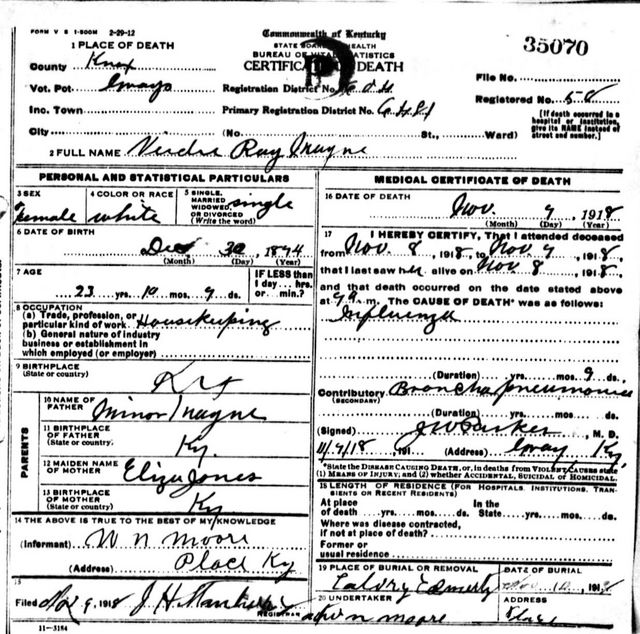 FORM V S 1-500M 2-29-12
Commonwealth of Kentucky
35070
1 PLACE OF DEATH
STATE BOARD OF HEALTH
BUREAU OF VITAL STATISTICS
County Knox
CERTIFICATE OF DEATH
File No.
Vot. Pct
Registration District No.
Registered No. 58
Inc. Town
Primary Registration District No.
City (No. St., Ward)
[If death occurred in a hospital or institution, give its NAME instead of street and number.]
2 FULL NAME Ray
PERSONAL AND STATISTICAL PARTICULARS
3 SEX Female
4 COLOR OR RACE white
5 SINGLE, MARRIED, WIDOWED, OR DIVORCED (Write the word) single
6 DATE OF BIRTH
Dec 30 1894
(Month) (Day) (Year)
7 AGE
23 yrs. 10 mos. 9 ds.
IF LESS than 1 day ... hrs. or min.?
8 OCCUPATION
(a) Trade, profession, or particular kind of work Housekeeping
(b) General nature of industry business or establishment in which employed (or employer)
9 BIRTHPLACE
(State or country) Ky
PARENTS
10 NAME OF FATHER Minor
11 BIRTHPLACE OF FATHER
(State or country) Ky.
12 MAIDEN NAME OF MOTHER Eliza Jones
13 BIRTHPLACE OF MOTHER
(State or country) Ky
14 THE ABOVE IS TRUE TO THE BEST OF MY KNOWLEDGE
(Informant) W N Moore
(Address) Place Ky
15
Filed Nov 9, 1918 J. H.
REGISTRAR
11-3184
MEDICAL CERTIFICATE OF DEATH
16 DATE OF DEATH
Nov. 9, 1918
(Month) (Day) (Year)
17 I HEREBY CERTIFY, That I attended deceased
from Nov. 8, 1918, to Nov 9, 1918,
that I last saw her alive on Nov 8, 1918,
and that death occurred on the date stated above
at m. The CAUSE OF DEATH* was as follows:
Influenza
(Duration) yrs. mos. 9 ds.
Contributory Broncho pneumonia
(SECONDARY)
(Duration) yrs. mos. ds.
(Signed) J W Parker, M. D.
11/9/18, 191 (Address) Gray Ky
*State the DISEASE CAUSING DEATH, or, in deaths from VIOLENT CAUSES state (1) MEANS OF INJURY; and (2) whether ACCIDENTAL, SUICIDAL or HOMICIDAL.
18 LENGTH OF RESIDENCE (FOR HOSPITALS, INSTITUTIONS, TRANSIENTS OR RECENT RESIDENTS)
At place of death yrs. mos. ds. In the State yrs. mos. ds.
Where was disease contracted, if not at place of death?
Former or usual residence
19 PLACE OF BURIAL OR REMOVAL
DATE OF BURIAL
Nov 10, 1918
20 UNDERTAKER
ADDRESS
n moore
Place